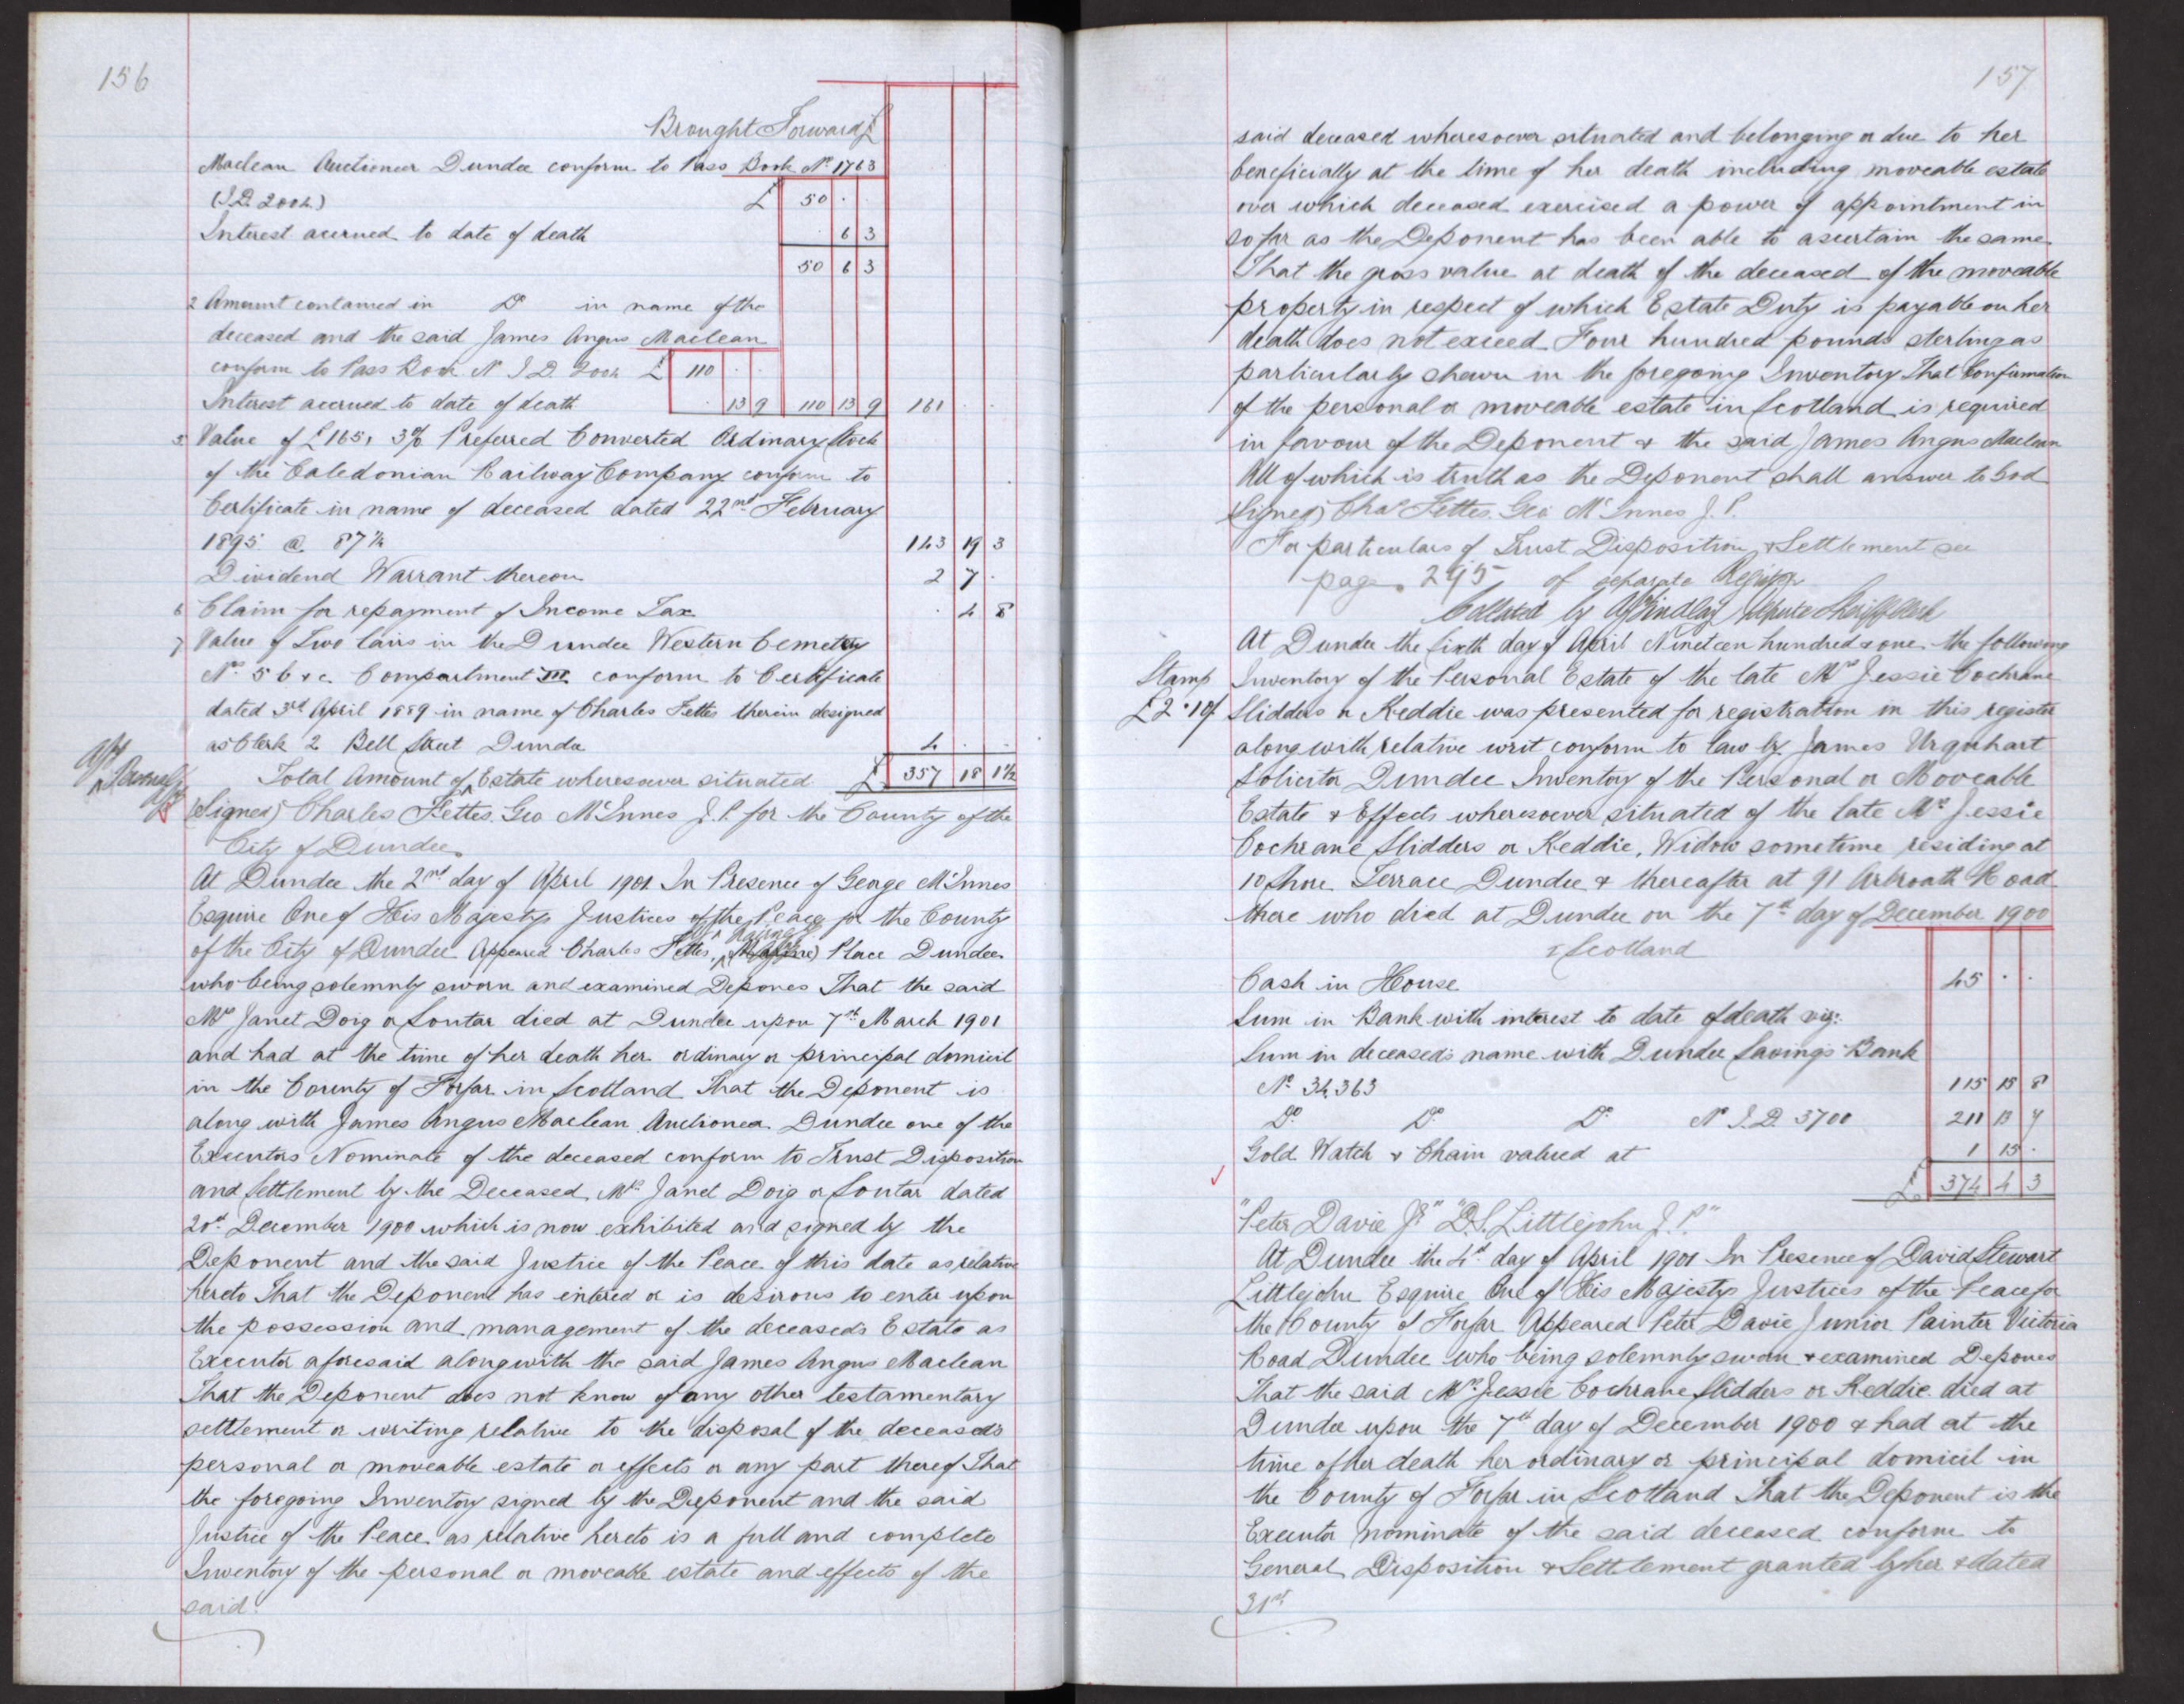 156
Brought Forward £
Maclean Auctioneer Dundee conform to Pass Book No. 1763
(I.D. 2004) £ 50 . .
Interest accrued to date of death . 6 3
50 6 3
2 Amount contained in Do in name of the
deceased and the said James Angus Maclean
conform to Pass Book No I.D. 2004 £ 110 . .
Interest accrued to date of death . 13 9 110 13 9 161 . .
Value of £165, 3% Preferred Converted Ordinary Stock
of the Caledonian Railway Company conform to
Certificate in name of deceased dated 22nd February
1895 @ 87¼ 143 19 3
Dividend Warrant thereon 2 7 .
6 Claim for repayment of Income Tax . 4 8
7 Value of Two lairs in the Dundee Western Cemetery
Nos 5 b & c. Compartment III conform to Certificate
dated 3rd April 1889 in name of Charles Fettes therein designed
as Clerk 2 Bell Street Dundee 4 . .
Total Amount of Estate wheresoever situated £ 357 18 1½
(Signed) Charles Fettes. Geo McInnes J.P. for the County of the
City of Dundee
At Dundee the 2nd day of April 1901 In Presence of George McInnes
Esquire One of His Majestys Justices of the Peace for the County
of the City of Dundee Appeared Charles Fettes, Place Dundee
who being solemnly sworn and examined Depones That the said
Mrs Janet Doig or Soutar died at Dundee upon 7th March 1901
and had at the time of her death her ordinary or principal domicil
in the County of Forfar in Scotland That the Deponent is
along with James Angus Maclean Auctioneer Dundee one of the
Executors Nominate of the deceased conform to Trust Disposition
and Settlement by the Deceased Mrs Janet Doig or Soutar dated
20th December 1900 which is now exhibited and signed by the
Deponent and the said Justice of the Peace of this date as relative
hereto That the Deponent has entered or is desirous to enter upon
the possession and management of the deceased's Estate as
Executor aforesaid along with the said James Angus Maclean
That the Deponent does not know of any other testamentary
settlement or writing relative to the disposal of the deceased's
personal or moveable estate or effects or any part thereof That
the foregoing Inventory signed by the Deponent and the said
Justice of the Peace as relative hereto is a full and complete
Inventory of the personal or moveable estate and effects of the
said
157
said deceased wheresoever situated and belonging or due to her
beneficially at the time of her death including moveable estate
over which deceased exercised a power of appointment in
so far as the Deponent has been able to ascertain the same
That the gross value at death of the deceased of the moveable
property in respect of which Estate Duty is payable on her
death does not exceed Four hundred pounds sterling as
particularly shewn in the foregoing Inventory That Confirmation
of the personal or moveable estate in Scotland is required
in favour of the Deponent & the said James Angus Maclean
All of which is truth as the Deponent shall answer to God
(Signed) Chas Fettes. Geo McInnes J.P.
For particulars of Trust Disposition & Settlement see
page 295 of separate Register
Collated by Findlay Depute Sheriff Clerk
At Dundee the Sixth day of April Nineteen hundred & one the following
Stamp Inventory of the Personal Estate of the late Mrs Jessie Cochrane
£2.10/ Slidders or Keddie was presented for registration in this register
along with relative writ conform to law by James Urquhart
Solicitor Dundee Inventory of the Personal or Moveable
Estate & Effects wheresoever situated of the late Mrs Jessie
Cochrane Slidders or Keddie, Widow sometime residing at
10 Shore Terrace Dundee & thereafter at 91 Arbroath Road
there who died at Dundee on the 7th day of December 1900
Scotland
Cash in House 45 . .
Sum in Bank with interest to date of death viz:
Sum in deceased's name with Dundee Savings Bank
No. 34,363 115 15 8
Do. Do. Do. No I.D. 3700 211 13 7
Gold Watch & Chain valued at 1 15 .
£ 374 4 3
"Peter Davie Jr" "D.S. Littlejohn J.P."
At Dundee the 4th day of April 1901 In Presence of David Stewart
Littlejohn Esquire One of His Majestys Justices of the Peace for
the County of Forfar Appeared Peter Davie Junior Painter Victoria
Road Dundee who being solemnly sworn & examined Depones
That the said Mrs Jessie Cochrane Slidders or Keddie died at
Dundee upon the 7th day of December 1900 & had at the
time of her death her ordinary or principal domicil in
the County of Forfar in Scotland That the Deponent is the
Executor nominate of the said deceased conform to
General Disposition & Settlement granted by her & dated
31st